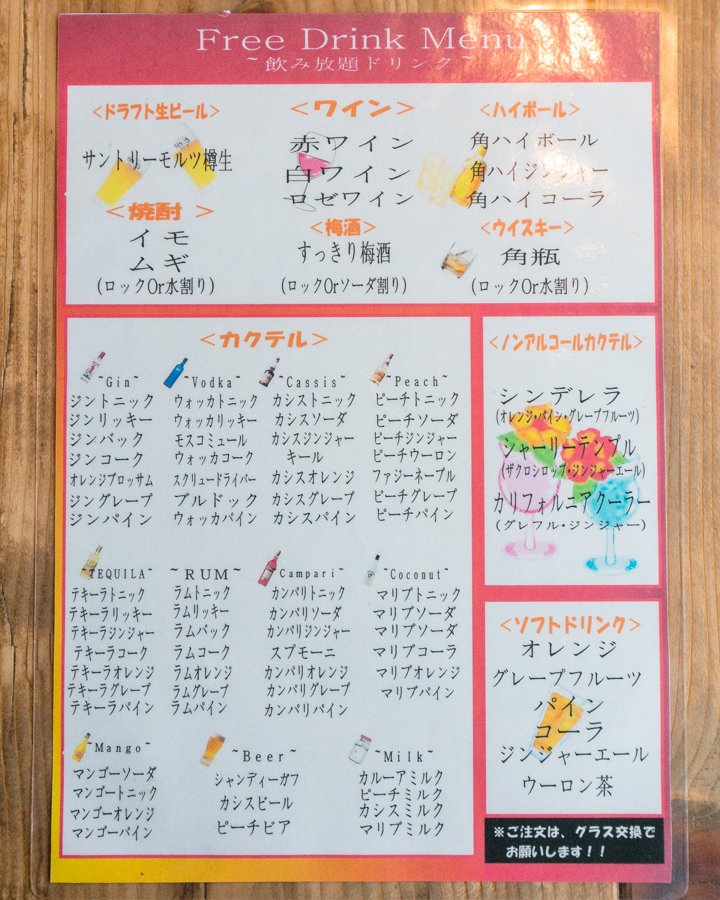 Free Drink Menu
~飲み放題ドリンク~
<ドラフト生ビール>
サントリーモルツ樽生
<焼酎>
イモ
ムギ
(ロックOr水割り)
<ワイン>
赤ワイン
白ワイン
ロゼワイン
<梅酒>
すっきり梅酒
(ロックOrソーダ割り)
<ハイボール>
角ハイボール
角ハイジンジャー
角ハイコーラ
<ウイスキー>
角瓶
(ロックOr水割り)
<カクテル>
~Gin~
ジントニック
ジンリッキー
ジンバック
ジンコーク
オレンジブロッサム
ジングレープ
ジンパイン
~Vodka~
ウォッカトニック
ウォッカリッキー
モスコミュール
ウォッカコーク
スクリュードライバー
ブルドック
ウォッカパイン
~Cassis~
カシストニック
カシスソーダ
カシスジンジャー
キール
カシスオレンジ
カシスグレープ
カシスパイン
~Peach~
ピーチトニック
ピーチソーダ
ピーチジンジャー
ピーチウーロン
ファジーネーブル
ピーチグレープ
ピーチパイン
~TEQUILA~
テキーラトニック
テキーラリッキー
テキーラジンジャー
テキーラコーク
テキーラオレンジ
テキーラグレープ
テキーラパイン
~RUM~
ラムトニック
ラムリッキー
ラムバック
ラムコーク
ラムオレンジ
ラムグレープ
ラムパイン
~Campari~
カンパリトニック
カンパリソーダ
カンパリジンジャー
スプモーニ
カンパリオレンジ
カンパリグレープ
カンパリパイン
~Coconut~
マリブトニック
マリブソーダ
マリブソーダ
マリブコーラ
マリブオレンジ
マリブパイン
~Mango~
マンゴーソーダ
マンゴートニック
マンゴーオレンジ
マンゴーパイン
~Beer~
シャンディーガフ
カシスビール
ピーチビア
~Milk~
カルーアミルク
ピーチミルク
カシスミルク
マリブミルク
<ノンアルコールカクテル>
シンデレラ
(オレンジ・パイン・グレープフルーツ)
シャーリーテンプル
(ザクロシロップ・ジンジャーエール)
カリフォルニアクーラー
(グレフル・ジンジャー)
<ソフトドリンク>
オレンジ
グレープフルーツ
パイン
コーラ
ジンジャーエール
ウーロン茶
※ご注文は、グラス交換で
お願いします！！